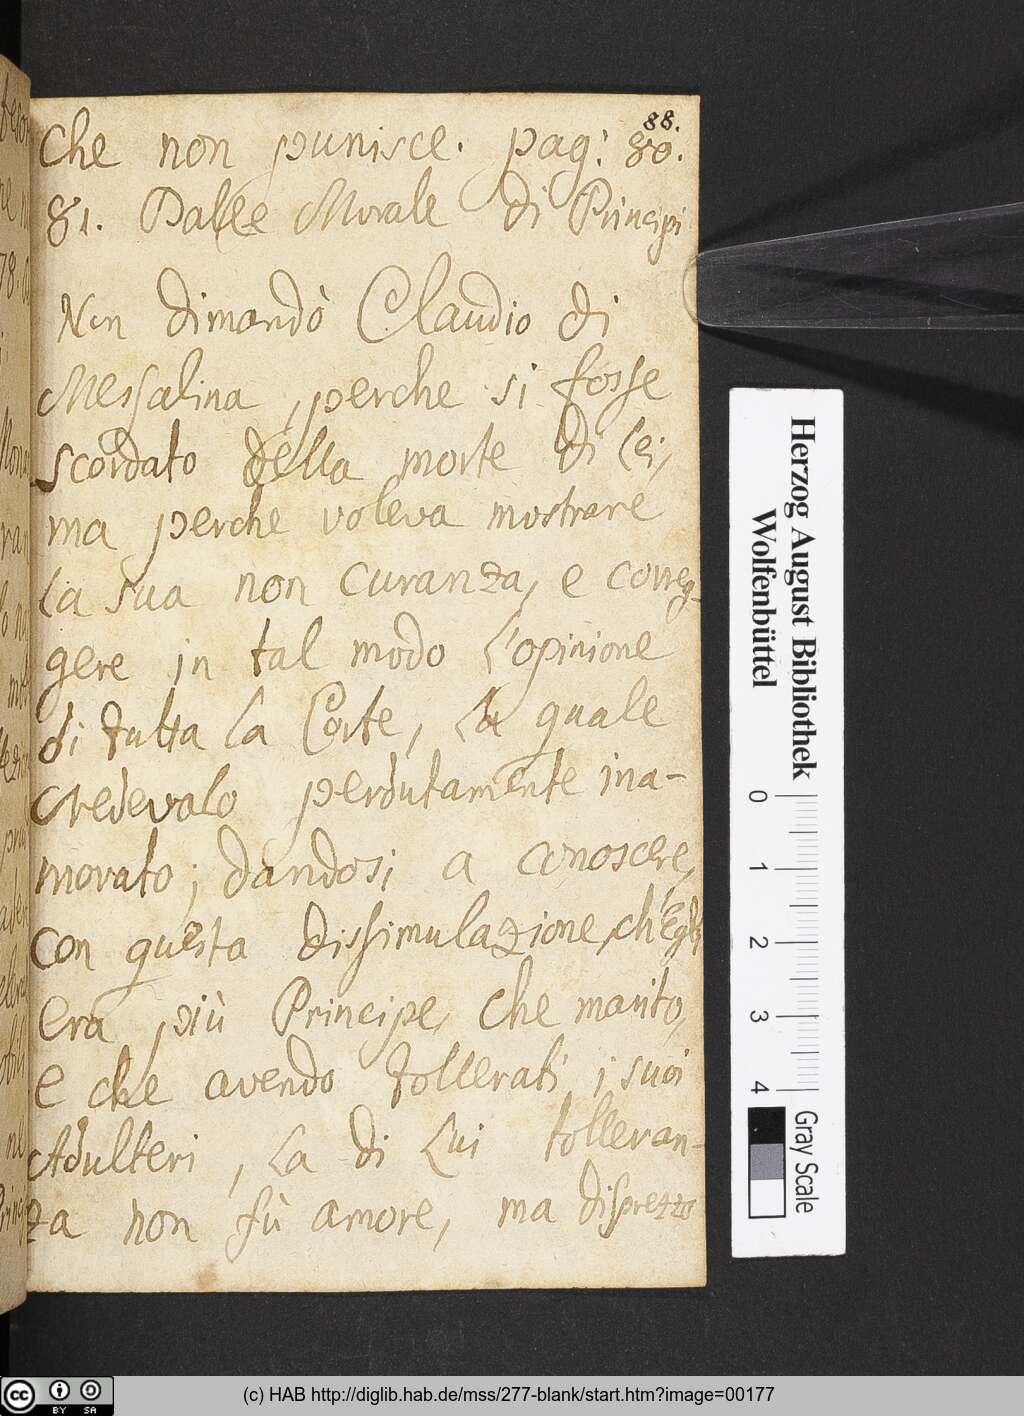 88.
Che non punisce. pag: 80.
81. Dalle Morale di Principi
Non dimandò Claudio di
Messalina, perche si fosse
scordato della morte di lei,
ma perche voleva mostrare
la sua non curanza, e correg-
gere in tal modo l'opinione
di tutta la Corte, la quale
credevalo perdutamente ina-
morato; dandosi a conoscere,
con questa dissimulazione, ch'Egli
era più Principe, che marito,
e che avendo tollerati i suoi
Adulteri, la di Lui tolleran-
za non fù amore, ma disprezzo
Herzog August Bibliothek
Wolfenbüttel
0 1 2 3 4
Gray Scale
cc BY SA
(c) HAB http://diglib.hab.de/mss/277-blank/start.htm?image=00177